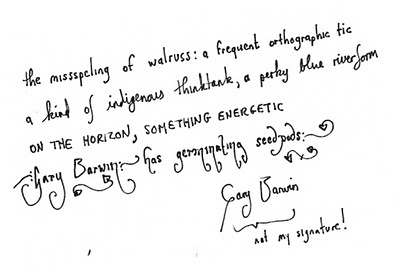 the missspeling of walruss: a frequent orthographic tic
a kind of indigenous thinktank, a perky blue riverform
ON THE HORIZON, SOMETHING ENERGETIC
Gary Barwin: has germinating seedpods:
Gary Barwin
not my signature!